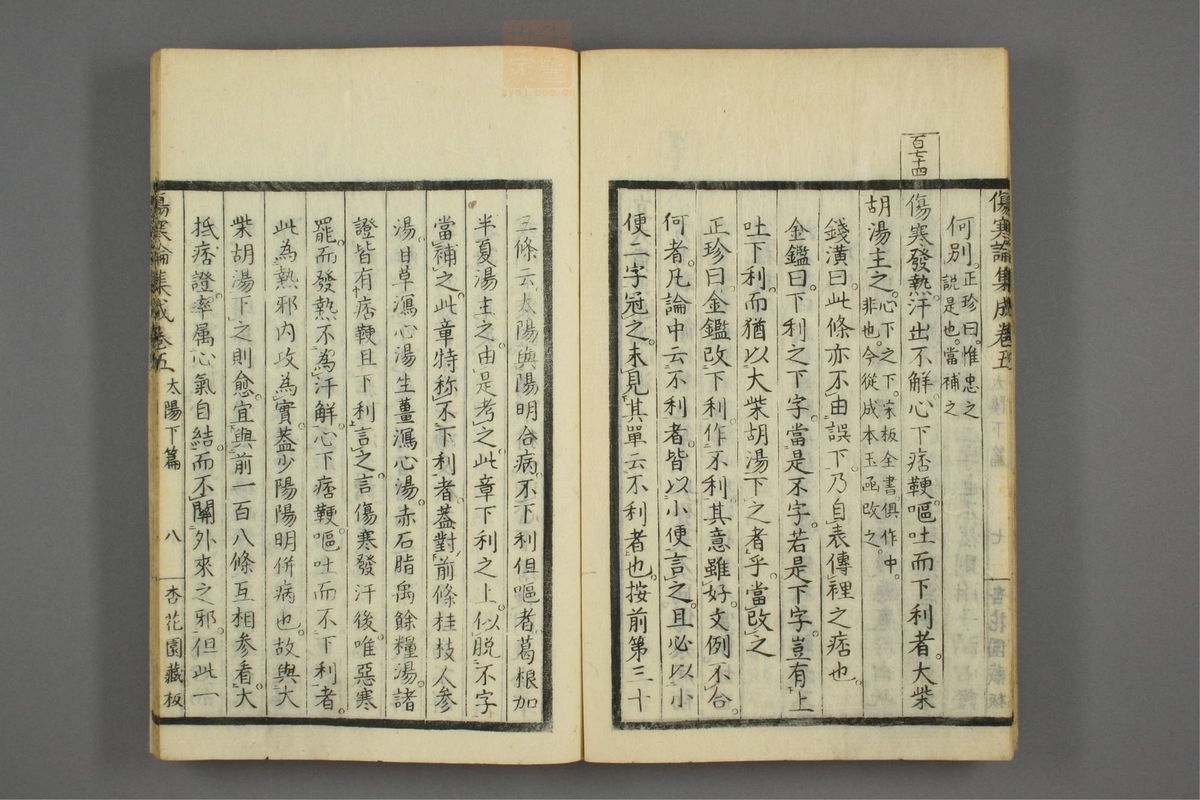 傷寒論集成卷五
何別。正珍曰。惟忠之
說是也。當補之
百七十四
傷寒發熱。汗出不解。心下痞鞕。嘔吐而下利者。大柴
胡湯主之。心下之下。宋板全書。俱作中。
非也。今從成本玉函改之。
錢潢曰。此條亦不由誤下。乃自表傳裡之痞也。
金鑑曰。下利之下字。當是不字。若是下字。豈有上
吐下利。而猶以大柴胡湯下之者乎。當改之
正珍曰。金鑑改下利作不利。其意雖好。文例不合。
何者。凡論中云不利者。皆以小便言之。且必以小
便二字冠之。未見其單云不利者也。按前第三十
三條云。太陽與陽明合病。不下利但嘔者。葛根加
半夏湯主之。由是考之。此章下利之上。似脫不字。
當補之。此章特称不下利者。蓋對前條桂枝人參
湯。甘草瀉心湯。生薑瀉心湯。赤石脂禹餘糧湯。諸
證皆有痞鞕且下利言之。言傷寒發汗後。唯惡寒
罷。而發熱不為汗解。心下痞鞕。嘔吐而不下利者。
此為熱邪內攻為實。蓋少陽陽明併病也。故與大
柴胡湯下之則愈。宜與前一百八條互相參看。大
抵痞證。率属心氣自結。而不關外來之邪。但此一
傷寒論集成卷五 太陽下篇 八 杏花園藏板